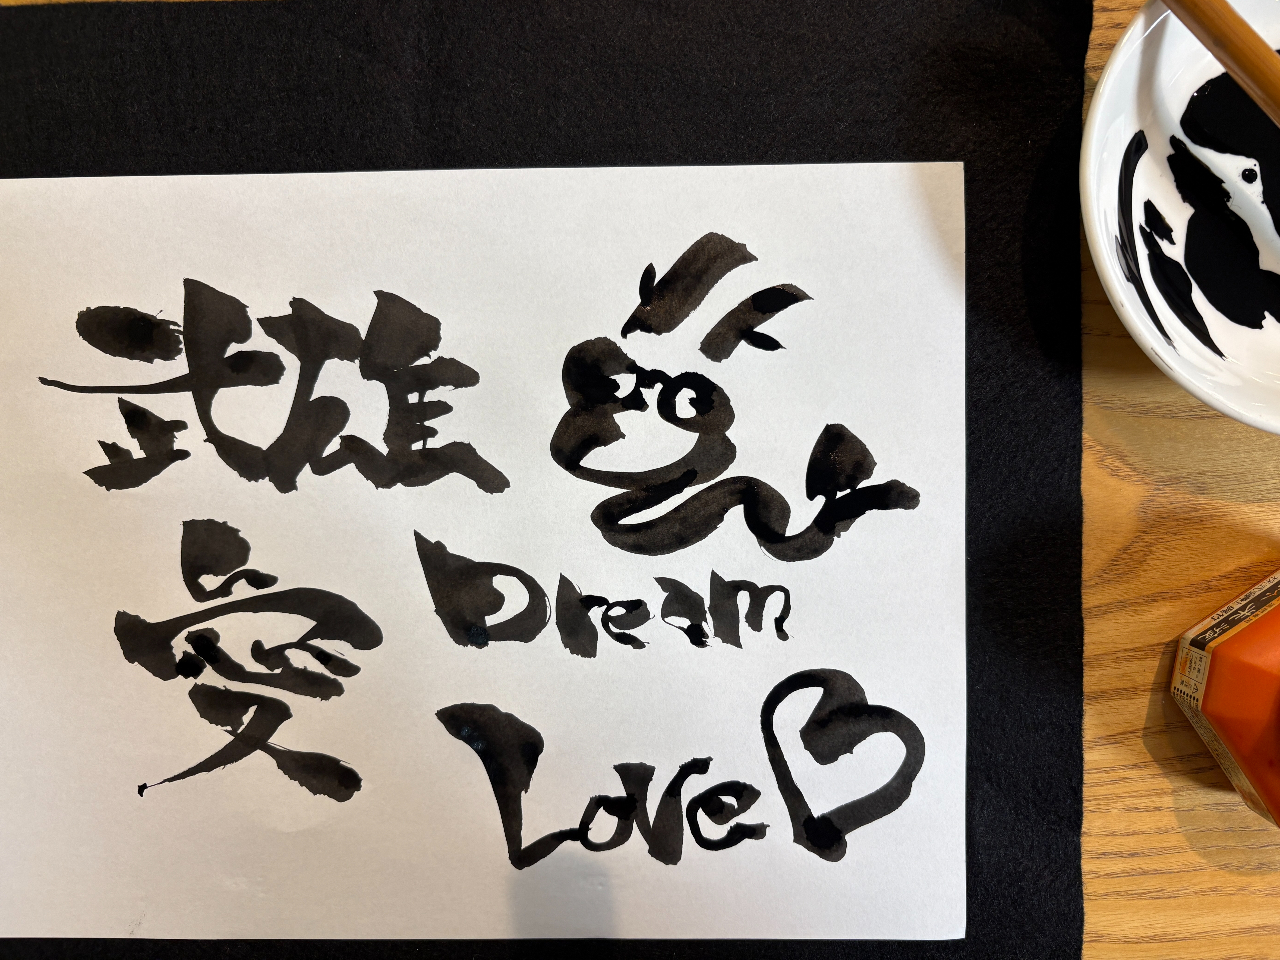 武雄
愛
Dream
Love